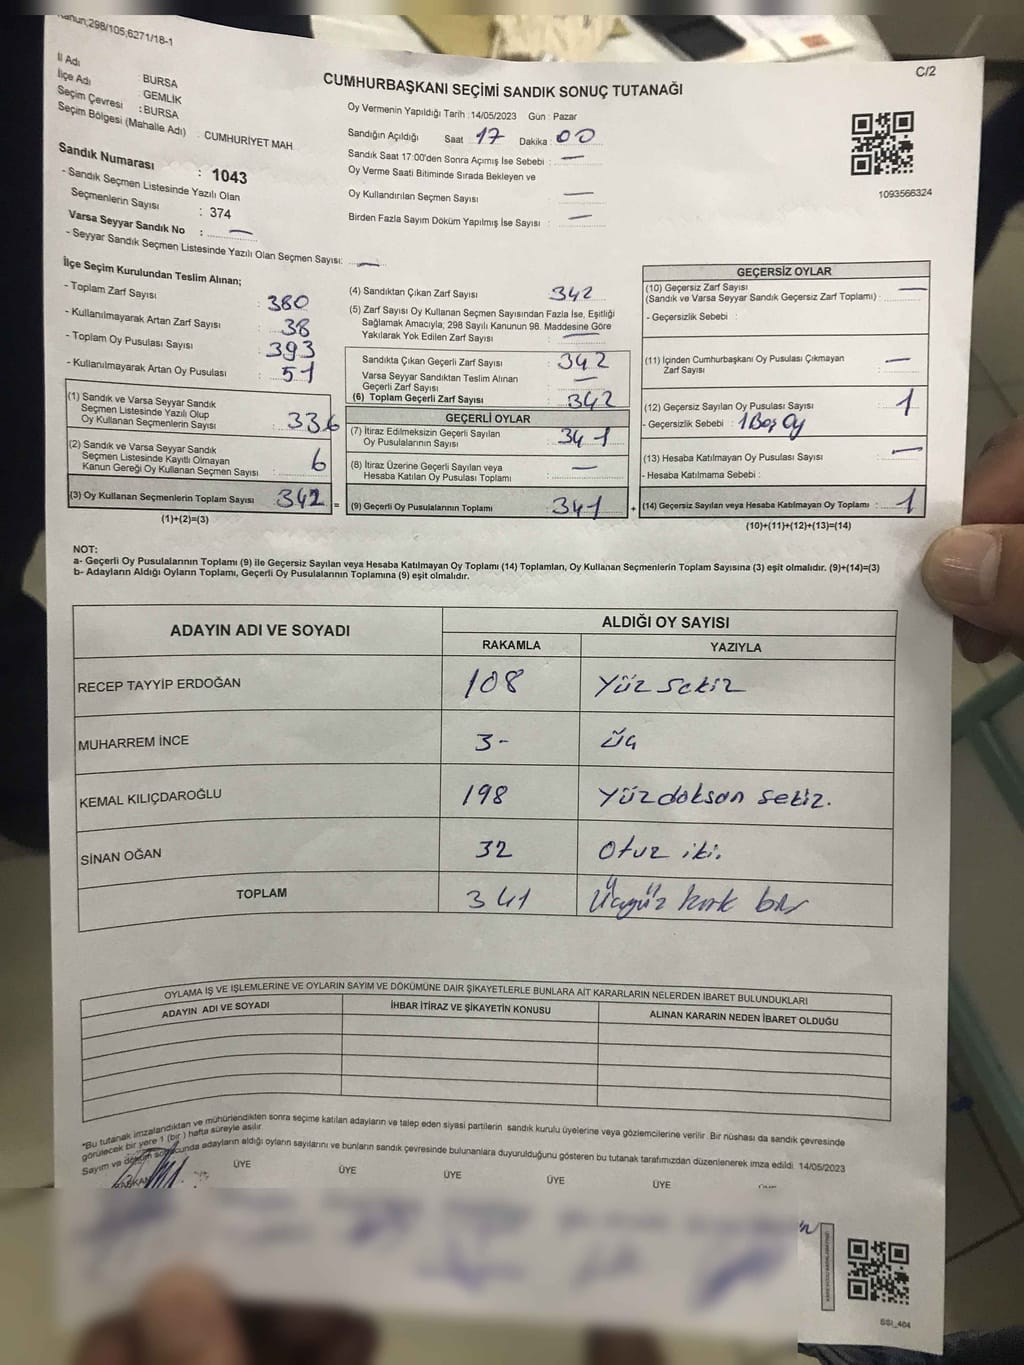 Kanun;298/105;6271/18-1
C/2
İl Adı : BURSA
İlçe Adı : GEMLİK
Seçim Çevresi : BURSA
Seçim Bölgesi (Mahalle Adı) : CUMHURİYET MAH
Sandık Numarası : 1043
- Sandık Seçmen Listesinde Yazılı Olan
Seçmenlerin Sayısı : 374
Varsa Seyyar Sandık No : —
- Seyyar Sandık Seçmen Listesinde Yazılı Olan Seçmen Sayısı: —
CUMHURBAŞKANI SEÇİMİ SANDIK SONUÇ TUTANAĞI
Oy Vermenin Yapıldığı Tarih : 14/05/2023 Gün : Pazar
Sandığın Açıldığı Saat 17 Dakika : 00
Sandık Saat 17:00'den Sonra Açımış İse Sebebi : —
Oy Verme Saati Bitiminde Sırada Bekleyen ve
Oy Kullandırılan Seçmen Sayısı —
Birden Fazla Sayım Döküm Yapılmış İse Sayısı : —
1093566324
İlçe Seçim Kurulundan Teslim Alınan;
- Toplam Zarf Sayısı : 380
- Kullanılmayarak Artan Zarf Sayısı : 38
- Toplam Oy Pusulası Sayısı : 393
- Kullanılmayarak Artan Oy Pusulası : 51
(1) Sandık ve Varsa Seyyar Sandık
Seçmen Listesinde Yazılı Olup
Oy Kullanan Seçmenlerin Sayısı : 336
(2) Sandık ve Varsa Seyyar Sandık
Seçmen Listesinde Kayıtlı Olmayan
Kanun Gereği Oy Kullanan Seçmen Sayısı : 6
(3) Oy Kullanan Seçmenlerin Toplam Sayısı : 342 =
(1)+(2)=(3)
(4) Sandıktan Çıkan Zarf Sayısı : 342
(5) Zarf Sayısı Oy Kullanan Seçmen Sayısından Fazla İse, Eşitliği
Sağlamak Amacıyla; 298 Sayılı Kanunun 98. Maddesine Göre
Yakılarak Yok Edilen Zarf Sayısı : —
Sandıkta Çıkan Geçerli Zarf Sayısı : 342
Varsa Seyyar Sandıktan Teslim Alınan
Geçerli Zarf Sayısı : —
(6) Toplam Geçerli Zarf Sayısı : 342
GEÇERLİ OYLAR
(7) İtiraz Edilmeksizin Geçerli Sayılan
Oy Pusulalarının Sayısı : 341
(8) İtiraz Üzerine Geçerli Sayılan veya
Hesaba Katılan Oy Pusulası Toplamı : —
(9) Geçerli Oy Pusulalarının Toplamı : 341 +
GEÇERSİZ OYLAR
(10) Geçersiz Zarf Sayısı —
(Sandık ve Varsa Seyyar Sandık Geçersiz Zarf Toplamı) :
- Geçersizlik Sebebi :
(11) İçinden Cumhurbaşkanı Oy Pusulası Çıkmayan
Zarf Sayısı : —
(12) Geçersiz Sayılan Oy Pusulası Sayısı : 1
- Geçersizlik Sebebi : 1 Boş Oy
(13) Hesaba Katılmayan Oy Pusulası Sayısı : —
- Hesaba Katılmama Sebebi :
(14) Geçersiz Sayılan veya Hesaba Katılmayan Oy Toplamı : 1
(10)+(11)+(12)+(13)=(14)
NOT:
a- Geçerli Oy Pusulalarının Toplamı (9) ile Geçersiz Sayılan veya Hesaba Katılmayan Oy Toplamı (14) Toplamları, Oy Kullanan Seçmenlerin Toplam Sayısına (3) eşit olmalıdır. (9)+(14)=(3)
b- Adayların Aldığı Oyların Toplamı, Geçerli Oy Pusulalarının Toplamına (9) eşit olmalıdır.
ADAYIN ADI VE SOYADI
ALDIĞI OY SAYISI
RAKAMLA YAZIYLA
RECEP TAYYİP ERDOĞAN 108 Yüz sekiz
MUHARREM İNCE 3- Üç
KEMAL KILIÇDAROĞLU 198 Yüzdoksan sekiz.
SİNAN OĞAN 32 Otuz iki.
TOPLAM 341 Üçyüz kırk bir
OYLAMA İŞ VE İŞLEMLERİNE VE OYLARIN SAYIM VE DÖKÜMÜNE DAİR ŞİKAYETLERLE BUNLARA AİT KARARLARIN NELERDEN İBARET BULUNDUKLARI
ADAYIN ADI VE SOYADI İHBAR İTİRAZ VE ŞİKAYETİN KONUSU ALINAN KARARIN NEDEN İBARET OLDUĞU
*Bu tutanak imzalandıktan ve mühürlendikten sonra seçime katılan adayların ve talep eden siyasi partilerin sandık kurulu üyelerine veya gözlemcilerine verilir. Bir nüshası da sandık çevresinde
görülecek bir yere 1 (bir) hafta süreyle asılır.
Sayım ve döküm sonucunda adayların aldığı oyların sayılarını ve bunların sandık çevresinde bulunanlara duyurulduğunu gösteren bu tutanak tarafımızdan düzenlenerek imza edildi. 14/05/2023
BAŞKAN ÜYE ÜYE ÜYE ÜYE ÜYE
SSI_404